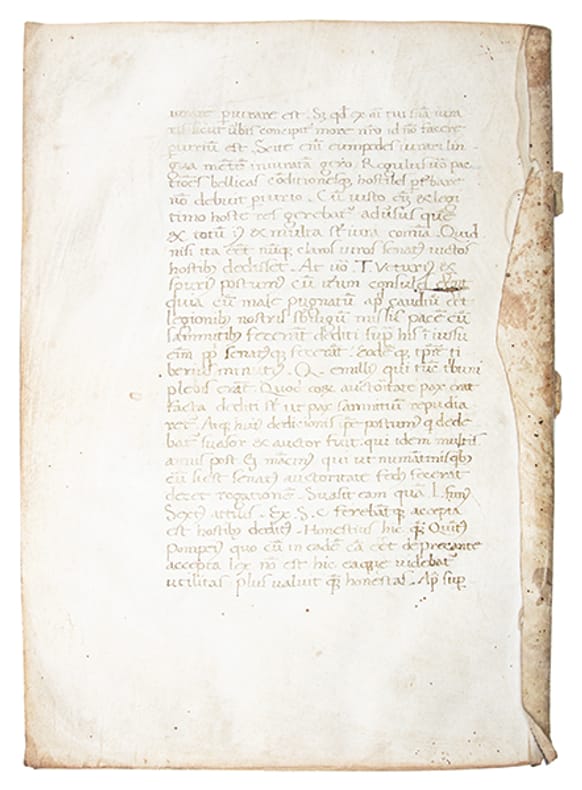 iurare piurare est. Sz qd ex aī tui snīa iura
ris sicut ubis concipit more nrō id nō facere
piuriū est. Scite eī euripides iuraui lin
gua mētē iniuratā gero. Regulus uō pac
tiōes bellicas cōditionesq hostiles pturbare
nō debuit piurio. Cū iusto eī & legi
timo hoste res gerebat aduersus quē
& totū iꝰ & multa st iura cōmīa. Quod
nisi ita eēt nūq claros uiros senatꝰ uictos
hostibꝰ dedisset. At uō T. Veturiꝰ &
spuriꝰ postumiꝰ cū iterum consules eēnt
quia cū male pugnatū apd caudiū eēt
legionibꝰ nostris sb iugū missis pacē cū
samnitibꝰ fecerāt dediti sūt his iniussu
eīm ppli senatꝰq fecerāt. eodēq tpre ti
beriꝰ minutiꝰ. Q. emiliꝰ qui tūc tribuni
plebis erāt. Quod eorꝝ auctoritate pax erat
facta dediti st ut pax samnitium repudia
ret. Atq huiꝰ dedicionis ipe postumiꝰ q dede
bat suasor & auctor fuit. qui idem multis
annis post C. mācinꝰ qui ut numātinis qbꝰ
cū sine senatꝰ auctoritate fedꝰ fecerat
det rogationē. Suasit eam quā L. furiꝰ
Sextꝰ atilius. Ex. S. C ferebāt q accepta
est hostibꝰ deditꝰ. Honestius hic q Quītꝰ
Pompeiꝰ quo cū in eadē cā eēt deprecante
accepta lex nō est hic ea que uidebat
utilitas plus ualuit q honestas. Apd sup